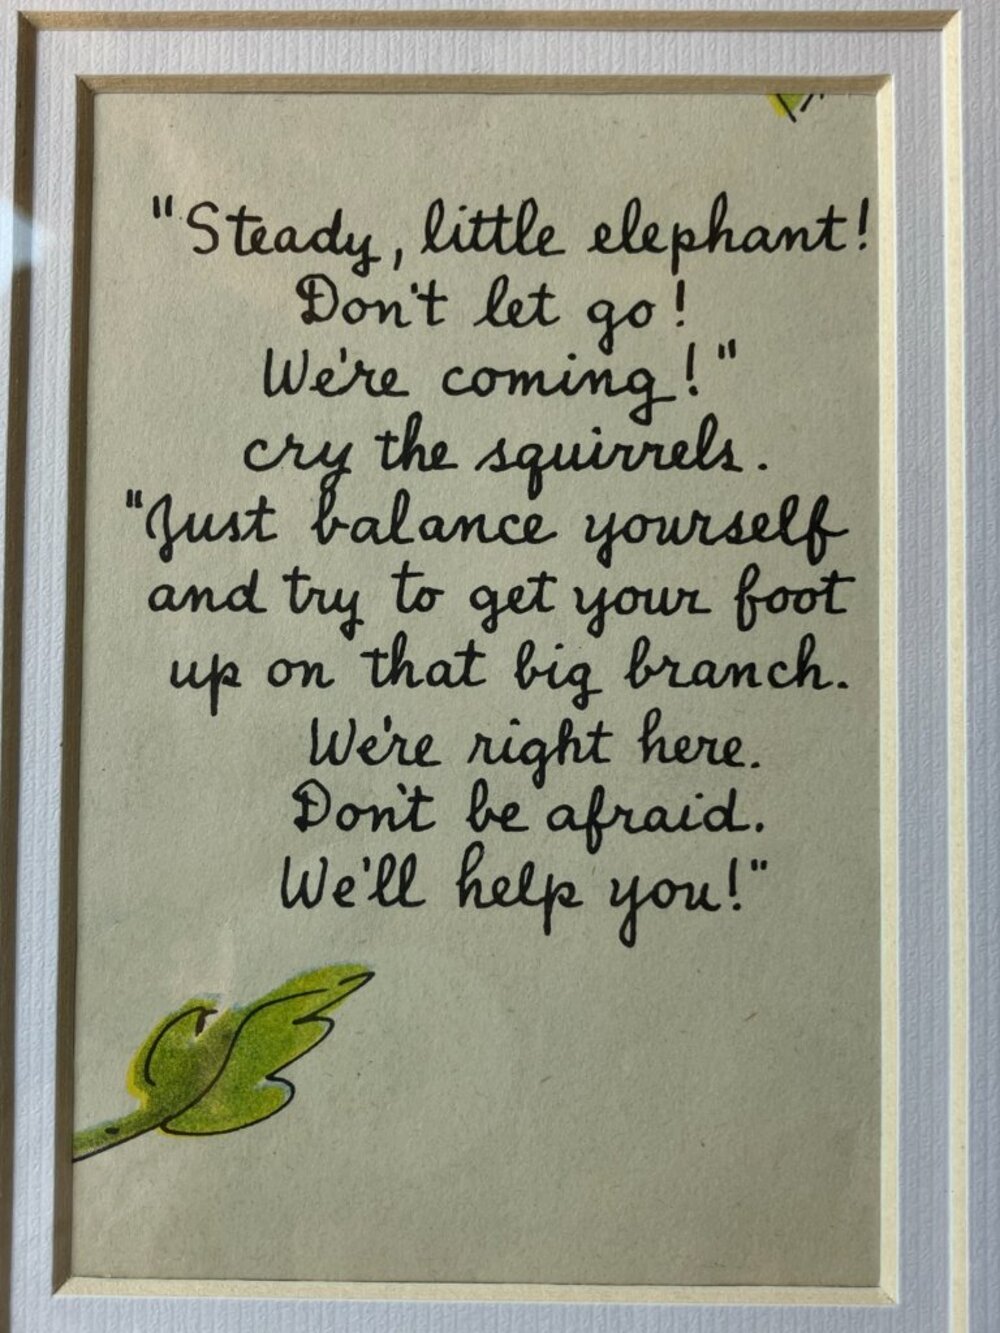 "Steady, little elephant!
Don't let go!
We're coming!"
cry the squirrels.
"Just balance yourself
and try to get your foot
up on that big branch.
We're right here.
Don't be afraid.
We'll help you!"